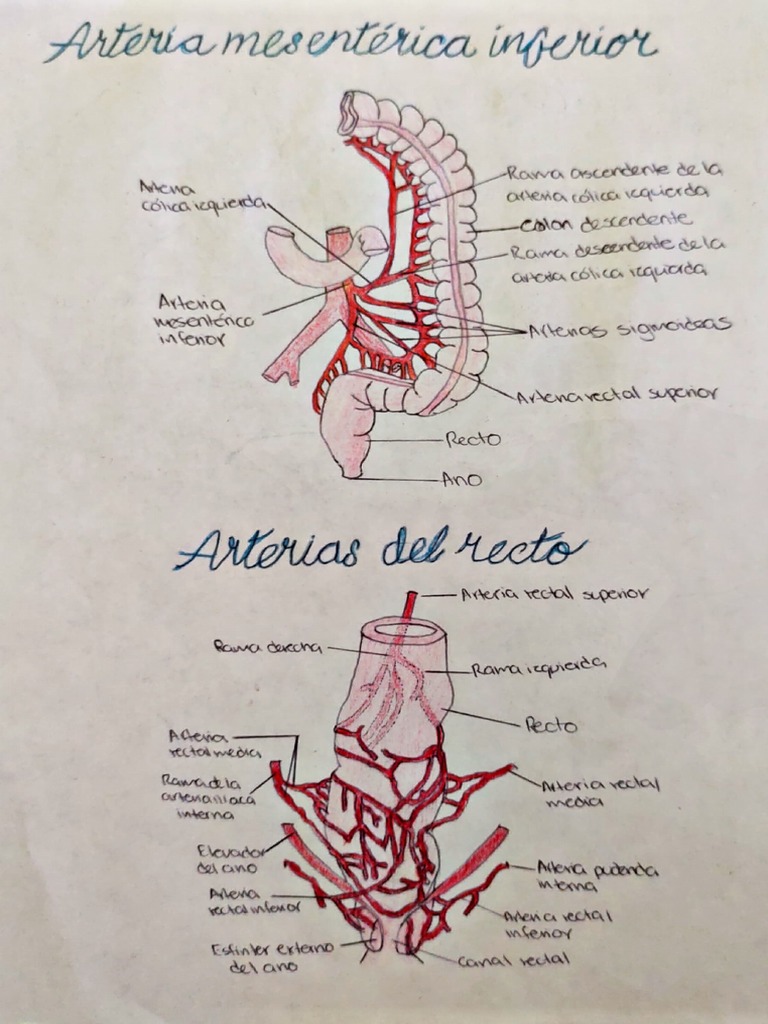 Arteria mesentérica inferior
Arteria
cólica izquierda
Rama ascendente de la
arteria cólica izquierda
Colon descendente
Rama descendente de la
arteria cólica izquierda
Arteria
mesentérica
inferior
Arterias sigmoideas
Arteria rectal superior
Recto
Ano
Arterias del recto
Arteria rectal superior
Rama derecha
Rama izquierda
Recto
Arteria
rectal media
Rama de la
arteria iliaca
interna
Arteria rectal
media
Elevador
del ano
Arteria pudenda
interna
Arteria
rectal inferior
Arteria rectal
inferior
Esfinter externo
del ano
Canal rectal